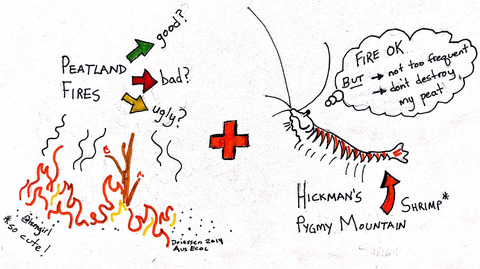 PEATLAND
FIRES
good?
bad?
ugly?
FIRE OK...
BUT → not too frequent
→ don't destroy
my peat
HICKMAN'S
PYGMY MOUNTAIN
SHRIMP*
*so cute!
Driessen 2019
Aus Ecol